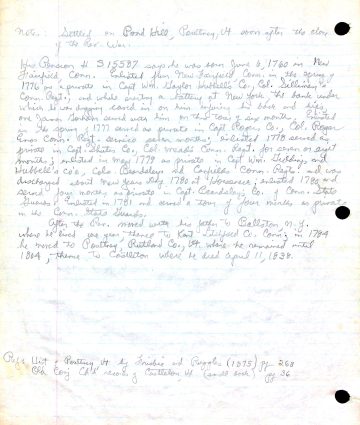 Note: Settled on Pond Hill, Poultney, Vt soon after the close
of the Rev. War.
His Pension # S15587 says he was born June 6, 1760 in New
Fairfield, Conn. Enlisted from New Fairfield Conn. in the spring of
1776 as a private in Capt Wm. Gaylor Hubbell's Co, Col. Silliman's
Conn Regt; and while erecting a battery at New York the bank under
which he was digging caved in on him injuring his back and
one served with him on this tour of six months, enlisted
in the spring of 1777 served as private in Capt Co, Col. Roger
Enos Conn. Regt. service seven months; enlisted 1778 served as
private in Capt. Co, Col. Meads Conn. Regt. for seven or eight
months; enlisted in May 1779 as private in Capt Wm.
Hubbell's co's, Cols Beardsleys and Conn. Regt. and was
discharged about New Years day 1780 at Horseneck; enlisted 1780 and
served four months as private in Capt. Beardsleys Co, Conn. State
Guards; enlisted in 1781 and served a tour of four months as private
in the Conn. State Guards.
After the Rev. moved with his father to Ballston, N.Y.
where he lived one year, thence to Kent Litchfield Co. Conn; in 1784
he moved to Poultney, Rutland Co, Vt. where he remained until
1804, thence to Castleton where he died April 11, 1838.
Refs Hist of Poultney, Vt by Frisbie and Ruggles (1875) pg 268
Cong Ch records of Castleton, Vt (small book) pg 36